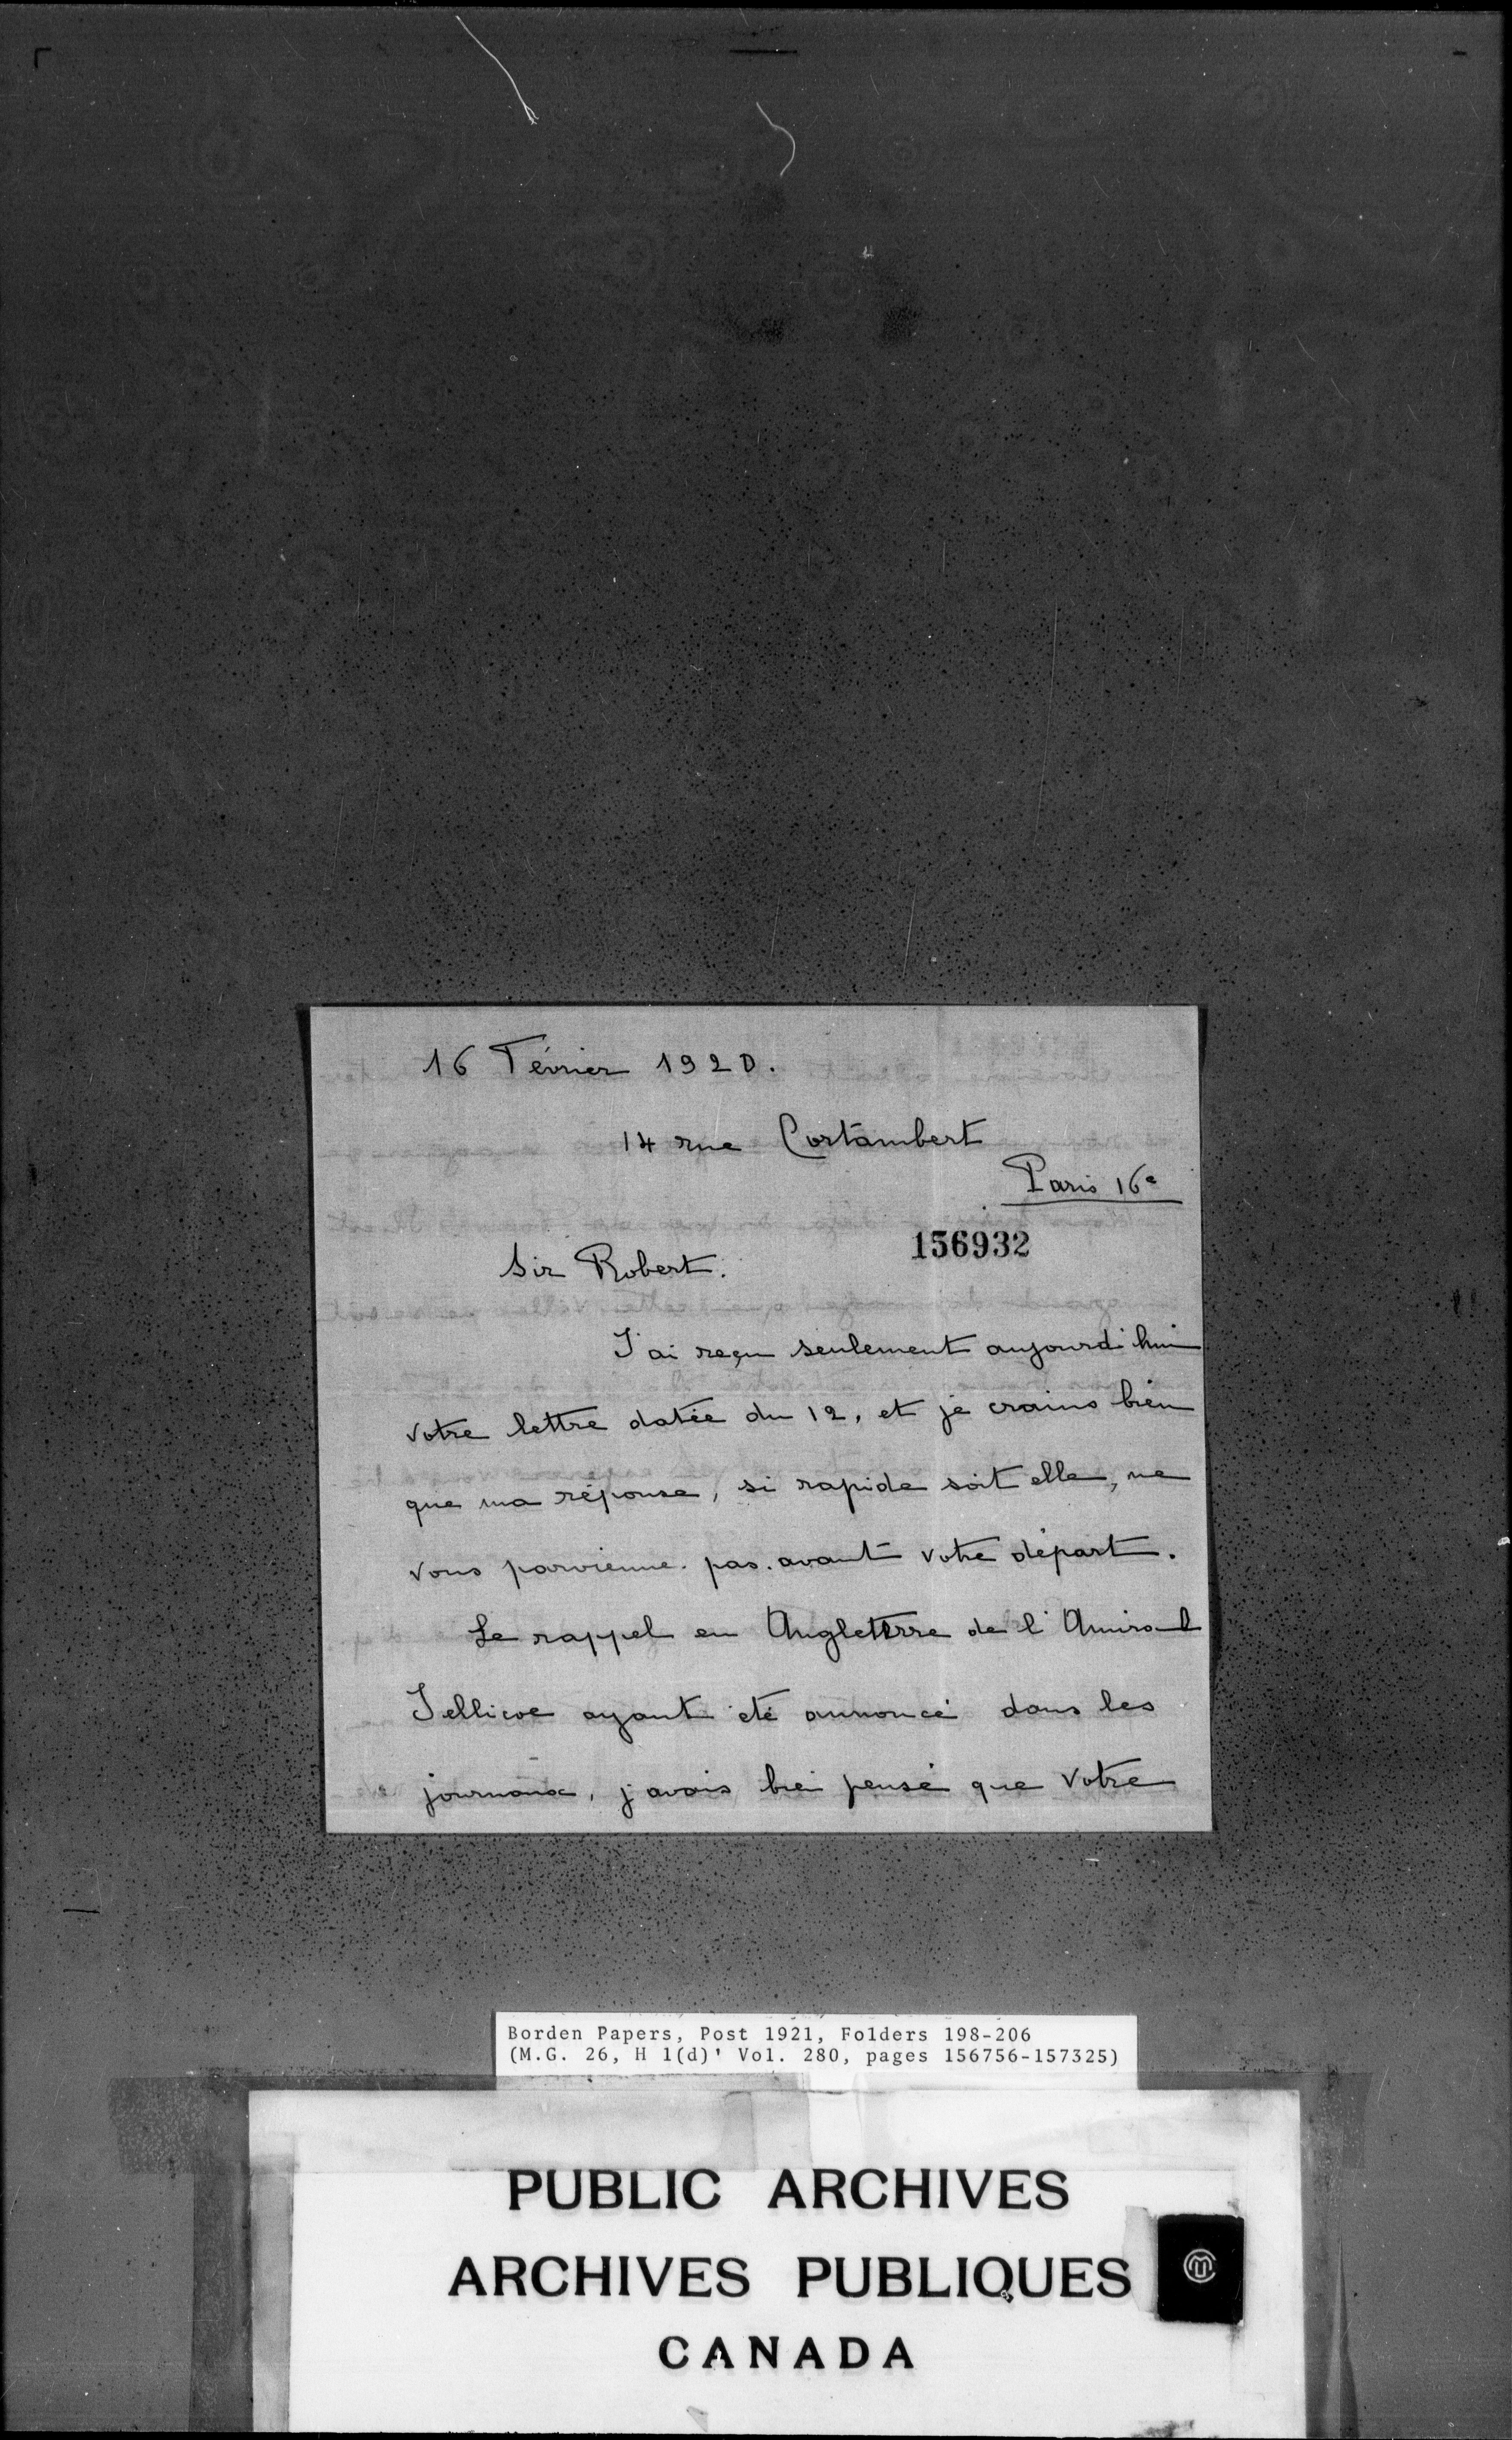 16 Février 1920.
14 rue Cortambert
Paris 16e
156932
Sir Robert.
J'ai reçu seulement aujourd'hui
votre lettre datée du 12, et je crains bien
que ma réponse, si rapide soit elle, ne
vous parvienne pas avant votre départ.
Le rappel en Angleterre de l'Amiral
Jellicoe ayant été annoncé dans les
journaux, j'avais bien pensé que votre
Borden Papers, Post 1921, Folders 198-206
(M.G. 26, H 1(d)' Vol. 280, pages 156756-157325)
PUBLIC ARCHIVES
ARCHIVES PUBLIQUES
CANADA